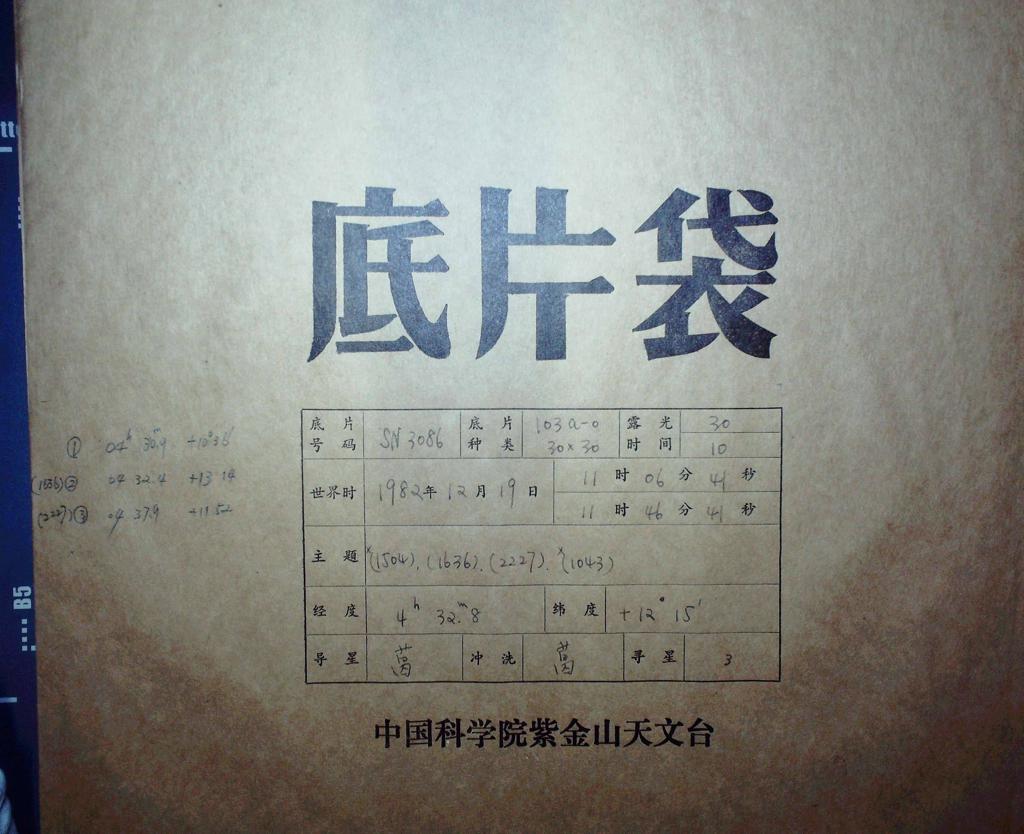 底片袋
底片号码 SN 3086 底片种类 103a-o 30×30 露光时间 30 10
世界时 1982年 12月 19日 11时 06分 41秒
11时 46分 41秒
主题 ×(1504). (1636). (2227). ×(1043)
经度 4ʰ 32.ᵐ8 纬度 +12° 15′
导星 冲洗 寻星 3
中国科学院紫金山天文台
① 04ʰ 30ᵐ.9 +10°36′
(1636)② 04 32.4 +13 14
(2227)③ 04 37.9 +11 52
B5